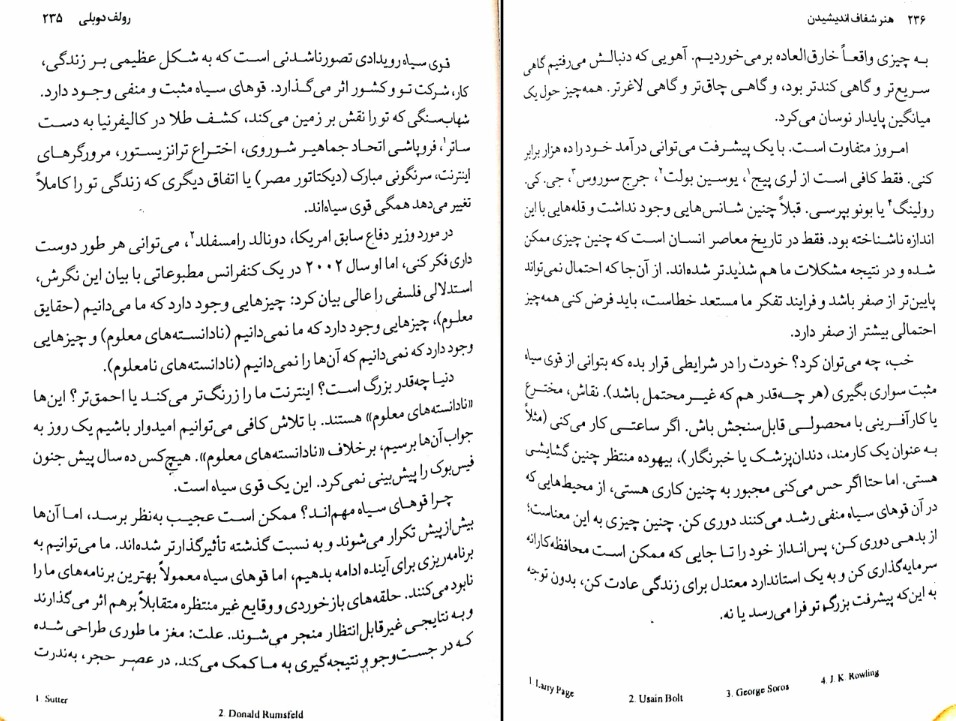 رولف دوبلی ۲۳۵
قوی سیاه رویدادی تصورناشدنی است که به شکل عظیمی بر زندگی،
کار، شرکت تو و کشور اثر می‌گذارد. قوهای سیاه مثبت و منفی وجود دارد.
شهاب‌سنگی که تو را نقش بر زمین می‌کند، کشف طلا در کالیفرنیا به دست
ساتر۱، فروپاشی اتحاد جماهیر شوروی، اختراع ترانزیستور، مرورگرهای
اینترنت، سرنگونی مبارک (دیکتاتور مصر) یا اتفاق دیگری که زندگی تو را کاملاً
تغییر می‌دهد همگی قوی سیاه‌اند.
در مورد وزیر دفاع سابق امریکا، دونالد رامسفلد۲، می‌توانی هر طور دوست
داری فکر کنی، اما او سال ۲۰۰۲ در یک کنفرانس مطبوعاتی با بیان این نگرش،
استدلالی فلسفی را عالی بیان کرد: چیزهایی وجود دارد که ما می‌دانیم (حقایق
معلوم)، چیزهایی وجود دارد که ما نمی‌دانیم (نادانسته‌های معلوم) و چیزهایی
وجود دارد که نمی‌دانیم که آن‌ها را نمی‌دانیم (نادانسته‌های نامعلوم).
دنیا چه‌قدر بزرگ است؟ اینترنت ما را زرنگ‌تر می‌کند یا احمق‌تر؟ این‌ها
«نادانسته‌های معلوم» هستند. با تلاش کافی می‌توانیم امیدوار باشیم یک روز به
جواب آن‌ها برسیم، برخلاف «نادانسته‌های معلوم». هیچ‌کس ده سال پیش جنون
فیس‌بوک را پیش‌بینی نمی‌کرد. این یک قوی سیاه است.
چرا قوهای سیاه مهم‌اند؟ ممکن است عجیب به‌نظر برسد، اما آن‌ها
بیش‌ازپیش تکرار می‌شوند و به نسبت گذشته تأثیرگذارتر شده‌اند. ما می‌توانیم به
برنامه‌ریزی برای آینده ادامه بدهیم، اما قوهای سیاه معمولاً بهترین برنامه‌های ما را
نابود می‌کنند. حلقه‌های بازخوردی و وقایع غیرمنتظره متقابلاً برهم اثر می‌گذارند
و به نتایجی غیرقابل‌انتظار منجر می‌شوند. علت: مغز ما طوری طراحی شده
که در جست‌وجو و نتیجه‌گیری به ما کمک می‌کند. در عصر حجر، به‌ندرت
1. Sutter
2. Donald Rumsfeld
۲۳۶ هنر شفاف اندیشیدن
به چیزی واقعاً خارق‌العاده برمی‌خوردیم. آهویی که دنبالش می‌رفتیم گاهی
سریع‌تر و گاهی کندتر بود، و گاهی چاق‌تر و گاهی لاغرتر. همه‌چیز حول یک
میانگین پایدار نوسان می‌کرد.
امروز متفاوت است. با یک پیشرفت می‌توانی درآمد خود را ده هزار برابر
کنی. فقط کافی است از لری پیج۱، یوسین بولت۲، جرج سوروس۳، جی. کی.
رولینگ۴ یا بونو بپرسی. قبلاً چنین شانس‌هایی وجود نداشت و قله‌هایی با این
اندازه ناشناخته بود. فقط در تاریخ معاصر انسان است که چنین چیزی ممکن
شده و در نتیجه مشکلات ما هم شدیدتر شده‌اند. از آن‌جا که احتمال نمی‌تواند
پایین‌تر از صفر باشد و فرایند تفکر ما مستعد خطاست، باید فرض کنی همه‌چیز
احتمالی بیشتر از صفر دارد.
خب، چه می‌توان کرد؟ خودت را در شرایطی قرار بده که بتوانی از قوی سیاه
مثبت سواری بگیری (هر چه‌قدر هم که غیرمحتمل باشد). نقاش، مخترع
یا کارآفرینی با محصولی قابل‌سنجش باش. اگر ساعتی کار می‌کنی (مثلاً
به عنوان یک کارمند، دندان‌پزشک یا خبرنگار)، بیهوده منتظر چنین گشایشی
هستی. اما حتا اگر حس می‌کنی مجبور به چنین کاری هستی، از محیط‌هایی که
در آن قوهای سیاه منفی رشد می‌کنند دوری کن. چنین چیزی به این معناست؛
از بدهی دوری کن، پس‌انداز خود را تا جایی که ممکن است محافظه‌کارانه
سرمایه‌گذاری کن و به یک استاندارد معتدل برای زندگی عادت کن، بدون توجه
به این‌که پیشرفت بزرگ تو فرا می‌رسد یا نه.
1. Larry Page
2. Usain Bolt
3. George Soros
4. J. K. Rowling